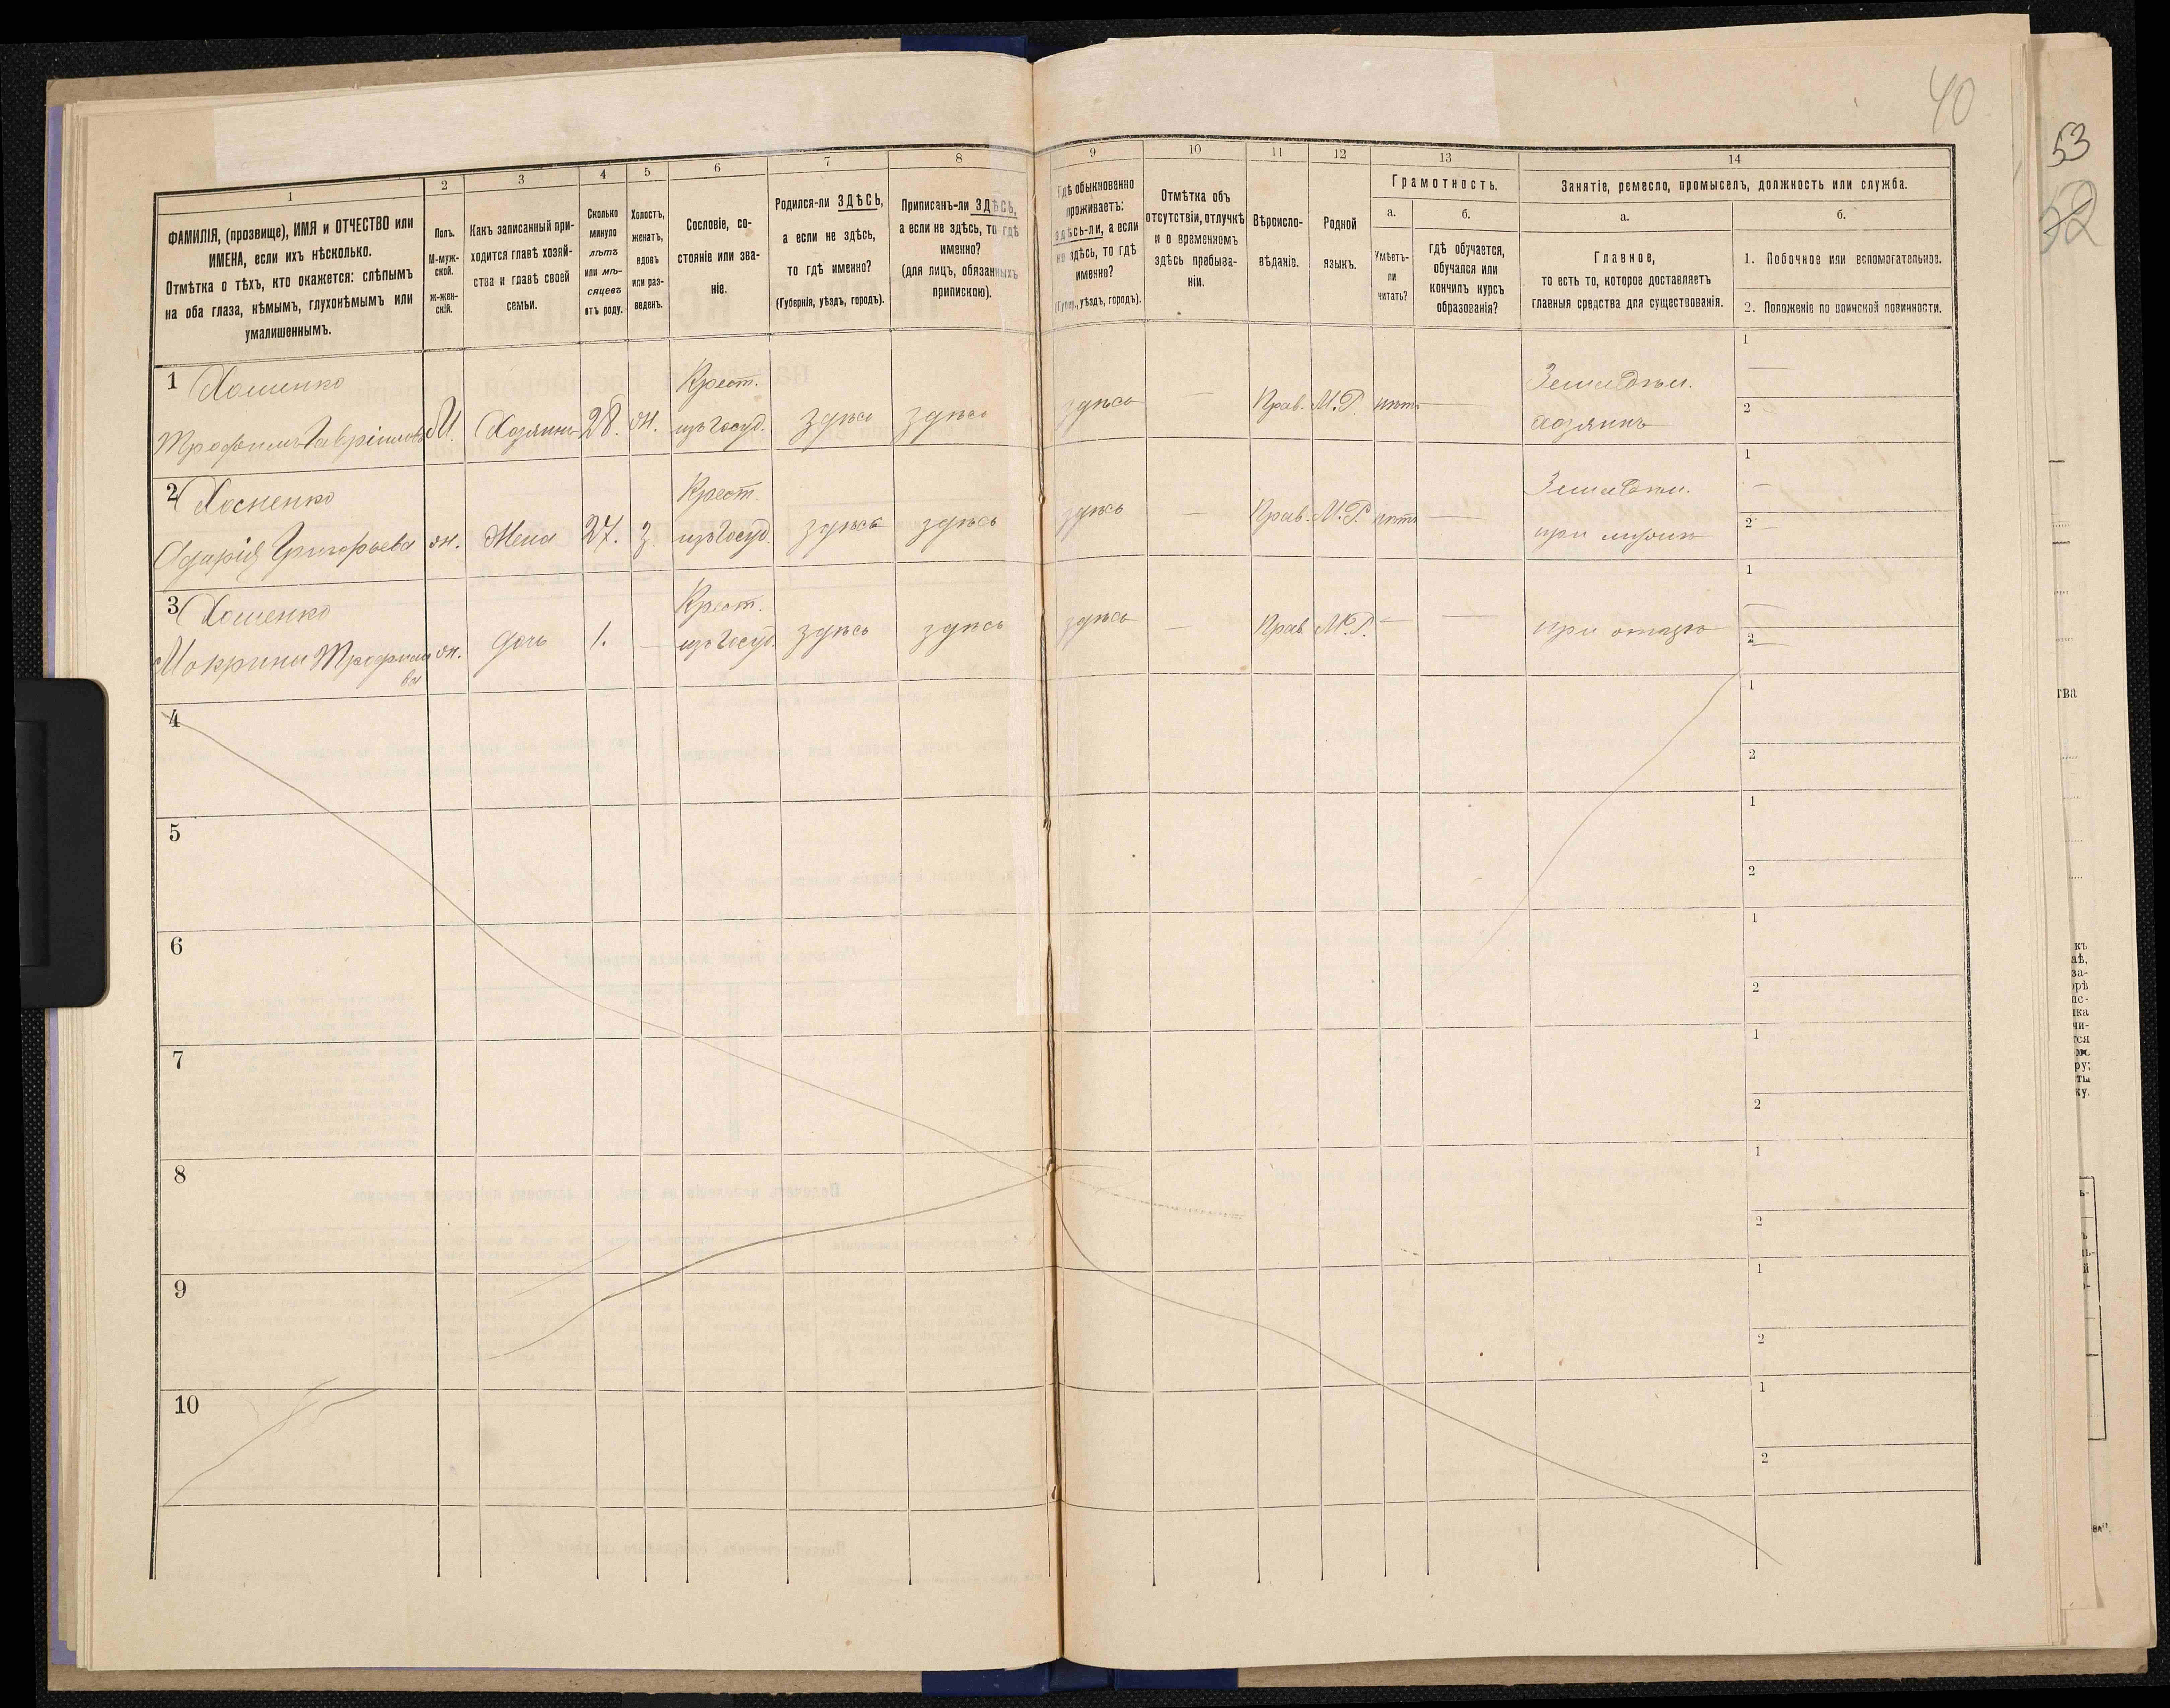 40
53
52
1
2
3
4
5
6
7
8
9
10
11
12
13
14
ФАМИЛІЯ, (прозвище), ИМЯ и ОТЧЕСТВО или
ИМЕНА, если ихъ нѣсколько.
Отмѣтка о тѣхъ, кто окажется: слѣпымъ
на оба глаза, нѣмымъ, глухонѣмымъ или
умалишеннымъ.
Полъ.
М-муж-
ской.
Ж-жен-
скій.
Какъ записанный при-
ходится главѣ хозяй-
ства и главѣ своей
семьи.
Сколько
минуло
лѣтъ
или мѣ-
сяцевъ
отъ роду.
Холостъ,
женатъ,
вдовъ
или раз-
веденъ.
Сословіе, со-
стояніе или зва-
ніе.
Родился-ли ЗДѢСЬ,
а если не здѣсь,
то гдѣ именно?
(Губернія, уѣздъ, городъ).
Приписанъ-ли ЗДѢСЬ,
а если не здѣсь, то гдѣ
именно?
(для лицъ, обязанныхъ
припискою).
Гдѣ обыкновенно
проживаетъ:
здѣсь-ли, а если
не здѣсь, то гдѣ
именно?
(Губер., уѣздъ, городъ).
Отмѣтка объ
отсутствіи, отлучкѣ
и о временномъ
здѣсь пребыва-
ніи.
Вѣроиспо-
вѣданіе.
Родной
языкъ.
Грамотность.
а.
Умѣетъ-
ли
читать?
б.
гдѣ обучается,
обучался или
кончилъ курсъ
образованія?
Занятіе, ремесло, промыселъ, должность или служба.
а.
Главное,
то есть то, которое доставляетъ
главныя средства для существованія.
б.
1. Побочное или вспомогательное.
2. Положеніе по воинской повинности.
1 Хоменко Крест. Земледѣл. 1 —
Трофимъ М. Хозяинъ 28. ж. изъ Госуд. здѣсь здѣсь здѣсь — Прав. М.Р. нѣтъ — хозяинъ 2 —
2 Крест. Земледѣл. 1 —
Одарія Григорьева ж. Жена 27. з. изъ Госуд. здѣсь здѣсь здѣсь — Прав. М.Р. нѣтъ — при мужѣ 2 —
3 Хоменко Крест. 1 —
Мокрина Трофимо ж. дочь 1. — изъ Госуд. здѣсь здѣсь здѣсь — Прав. М.Р. — — при отцѣ 2 —
ва
4 1
2
5 1
2
6 1
2
7 1
2
8 1
2
9 1
2
10 1
2